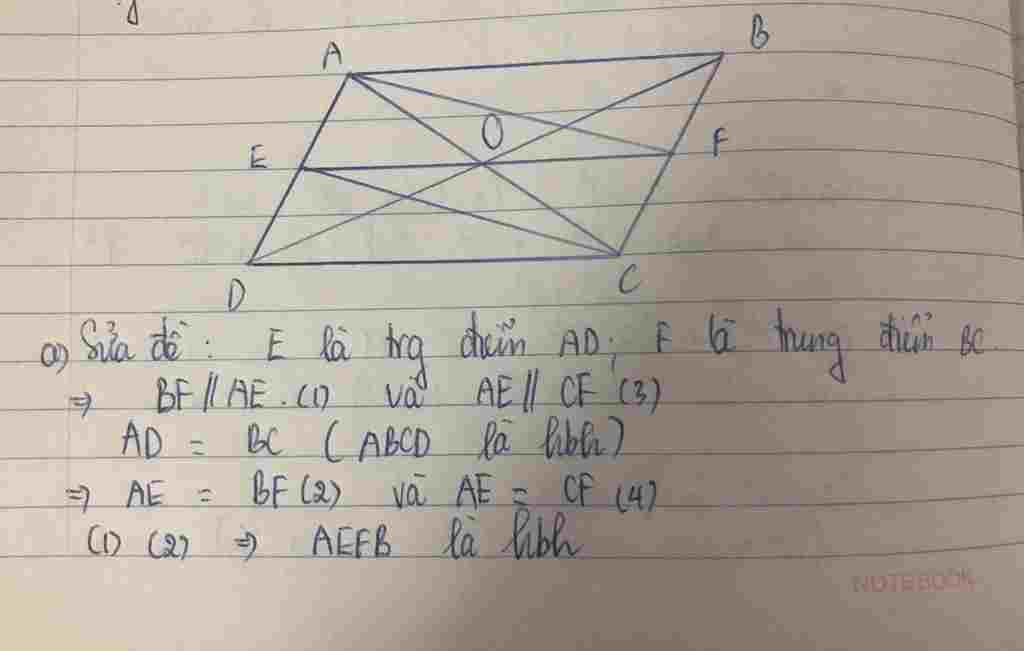 A
B
O
E
F
D
C
a) Sửa đề : E là trg điểm AD; F là trung điểm BC.
=> BF // AE . (1) và AE // CF (3)
AD = BC ( ABCD là hbh )
=> AE = BF (2) và AE = CF (4)
(1) (2) => AEFB là hbh
NOTEBOOK